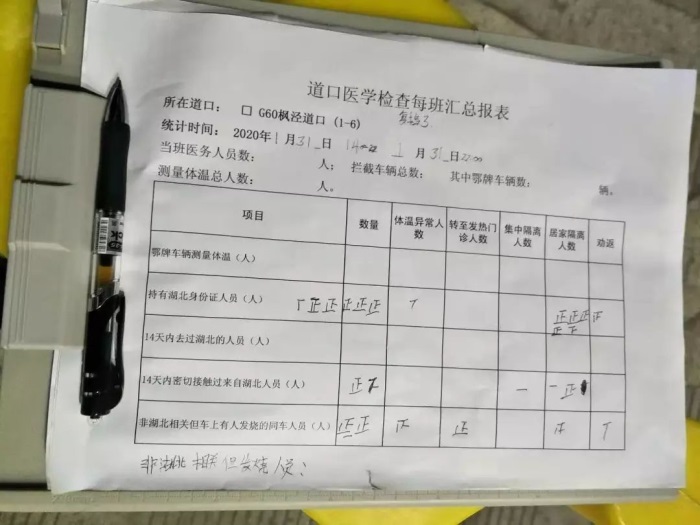 道口医学检查每班汇总报表
所在道口： □ G60枫泾道口（1-6）
统计时间： 2020年1月31日 1月31日
当班医务人员数： 人； 拦截车辆总数； 其中鄂牌车辆数： 辆、
测量体温总人数： 人。
项目 数量 体温异常人数 转至发热门诊人数 集中隔离人数 居家隔离人数 劝返
鄂牌车辆测量体温（人）
持有湖北身份证人员（人） 正正正正正 正正正正
14天内去过湖北的人员（人）
14天内密切接触过来自湖北人员（人） 正 一 一正
非湖北相关但车上有人发烧的同车人员（人） 正正 正
非湖北相关但发烧人员：